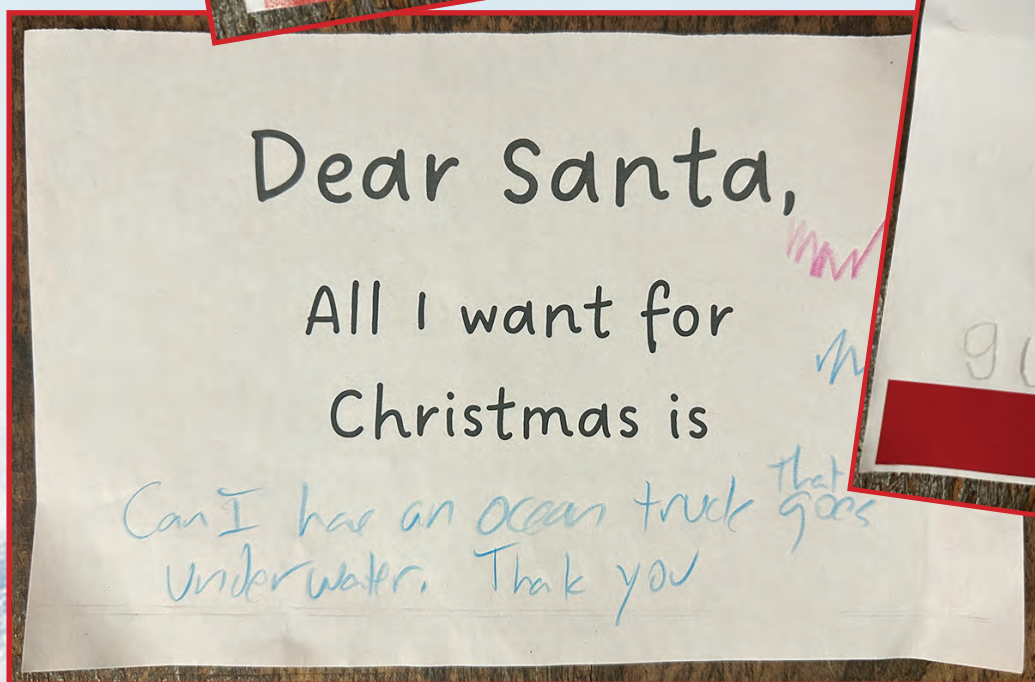 Dear Santa,
All I want for
Christmas is
Can I hav an ocean truck that goes
underwater. Thak you